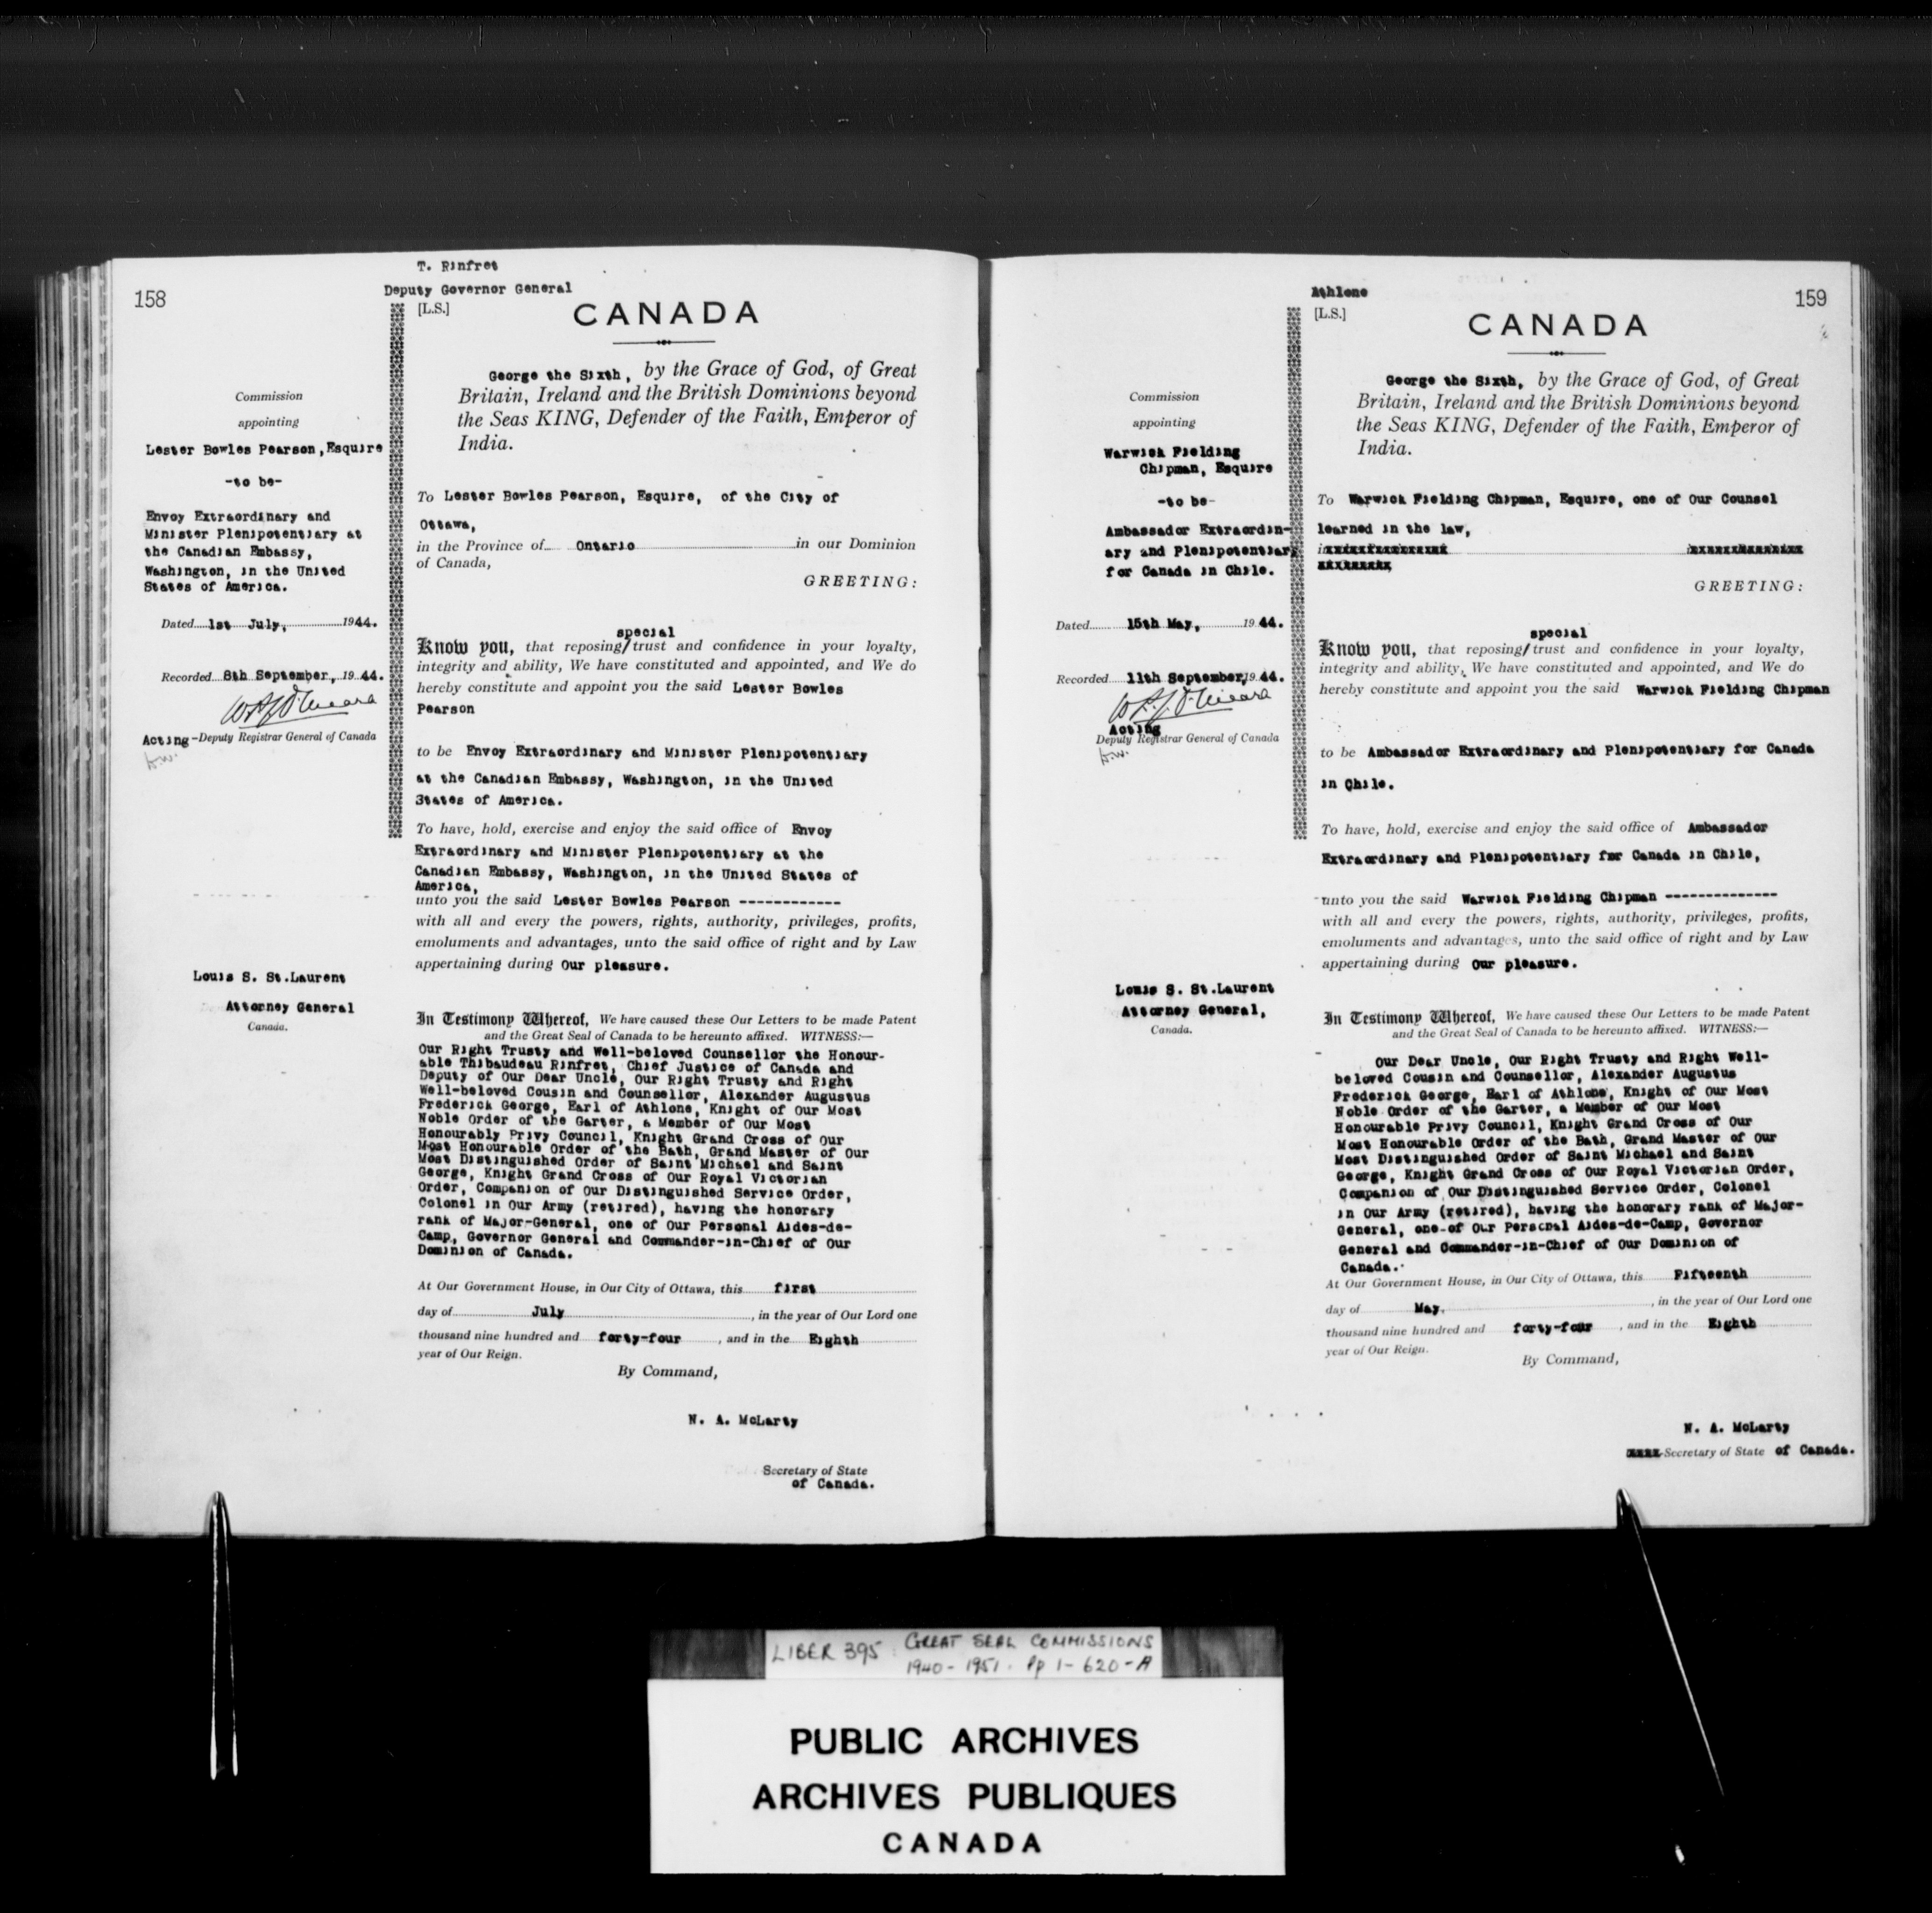 158
T. Rinfret
Deputy Governor General
[L.S.]
CANADA
Commission
appointing
Lester Bowles Pearson, Esquire
-to be-
Envoy Extraordinary and
Minister Plenipotentiary at
the Canadian Embassy,
Washington, in the United
States of America.
Dated 1st July, 1944.
Recorded 8th September, 1944.
Acting - Deputy Registrar General of Canada
Louis S. St.Laurent
Attorney General
Canada.
George the Sixth, by the Grace of God, of Great
Britain, Ireland and the British Dominions beyond
the Seas KING, Defender of the Faith, Emperor of
India.
To Lester Bowles Pearson, Esquire, of the City of
Ottawa,
in the Province of Ontario in our Dominion
of Canada,
GREETING:
special
Know you, that reposing/trust and confidence in your loyalty,
integrity and ability, We have constituted and appointed, and We do
hereby constitute and appoint you the said Lester Bowles
Pearson
to be Envoy Extraordinary and Minister Plenipotentiary
at the Canadian Embassy, Washington, in the United
States of America.
To have, hold, exercise and enjoy the said office of Envoy
Extraordinary and Minister Plenipotentiary at the
Canadian Embassy, Washington, in the United States of
America,
unto you the said Lester Bowles Pearson ------------
with all and every the powers, rights, authority, privileges, profits,
emoluments and advantages, unto the said office of right and by Law
appertaining during Our pleasure.
In Testimony Whereof, We have caused these Our Letters to be made Patent
and the Great Seal of Canada to be hereunto affixed. WITNESS:—
Our Right Trusty and Well-beloved Counsellor the Honour-
able Thibaudeau Rinfret, Chief Justice of Canada and
Deputy of Our Dear Uncle, Our Right Trusty and Right
Well-beloved Cousin and Counsellor, Alexander Augustus
Frederick George, Earl of Athlone, Knight of Our Most
Noble Order of the Garter, a Member of Our Most
Honourably Privy Council, Knight Grand Cross of Our
Most Honourable Order of the Bath, Grand Master of Our
Most Distinguished Order of Saint Michael and Saint
George, Knight Grand Cross of Our Royal Victorian
Order, Companion of Our Distinguished Service Order,
Colonel in Our Army (retired), having the honorary
rank of Major-General, one of Our Personal Aides-de-
Camp, Governor General and Commander-in-Chief of Our
Dominion of Canada.
At Our Government House, in Our City of Ottawa, this first
day of July, in the year of Our Lord one
thousand nine hundred and forty-four, and in the Eighth
year of Our Reign.
By Command,
N. A. McLarty
Secretary of State
of Canada.
159
Athlone
[L.S.]
CANADA
Commission
appointing
Warwick Fielding
Chipman, Esquire
-to be-
Ambassador Extraordin-
ary and Plenipotentiary
for Canada in Chile.
Dated 15th May, 1944.
Recorded 11th September, 1944.
Acting
Deputy Registrar General of Canada
Louis S. St.Laurent
Attorney General,
Canada.
George the Sixth, by the Grace of God, of Great
Britain, Ireland and the British Dominions beyond
the Seas KING, Defender of the Faith, Emperor of
India.
To Warwick Fielding Chipman, Esquire, one of Our Counsel
learned in the law,
GREETING:
special
Know you, that reposing/trust and confidence in your loyalty,
integrity and ability, We have constituted and appointed, and We do
hereby constitute and appoint you the said Warwick Fielding Chipman
to be Ambassador Extraordinary and Plenipotentiary for Canada
in Chile.
To have, hold, exercise and enjoy the said office of Ambassador
Extraordinary and Plenipotentiary for Canada in Chile,
unto you the said Warwick Fielding Chipman --------------
with all and every the powers, rights, authority, privileges, profits,
emoluments and advantages, unto the said office of right and by Law
appertaining during Our pleasure.
In Testimony Whereof, We have caused these Our Letters to be made Patent
and the Great Seal of Canada to be hereunto affixed. WITNESS:—
Our Dear Uncle, Our Right Trusty and Right Well-
beloved Cousin and Counsellor, Alexander Augustus
Frederick George, Earl of Athlone, Knight of Our Most
Noble Order of the Garter, a Member of Our Most
Honourable Privy Council, Knight Grand Cross of Our
Most Honourable Order of the Bath, Grand Master of Our
Most Distinguished Order of Saint Michael and Saint
George, Knight Grand Cross of Our Royal Victorian Order,
Companion of Our Distinguished Service Order, Colonel
in Our Army (retired), having the honorary rank of Major-
General, one of Our Personal Aides-de-Camp, Governor
General and Commander-in-Chief of Our Dominion of
Canada.
At Our Government House, in Our City of Ottawa, this Fifteenth
day of May, in the year of Our Lord one
thousand nine hundred and forty-four, and in the Eighth
year of Our Reign.
By Command,
N. A. McLarty
Secretary of State of Canada.
LIBER 395 GREAT SEAL COMMISSIONS
1940 - 1951. Pp 1 - 620-A
PUBLIC ARCHIVES
ARCHIVES PUBLIQUES
CANADA